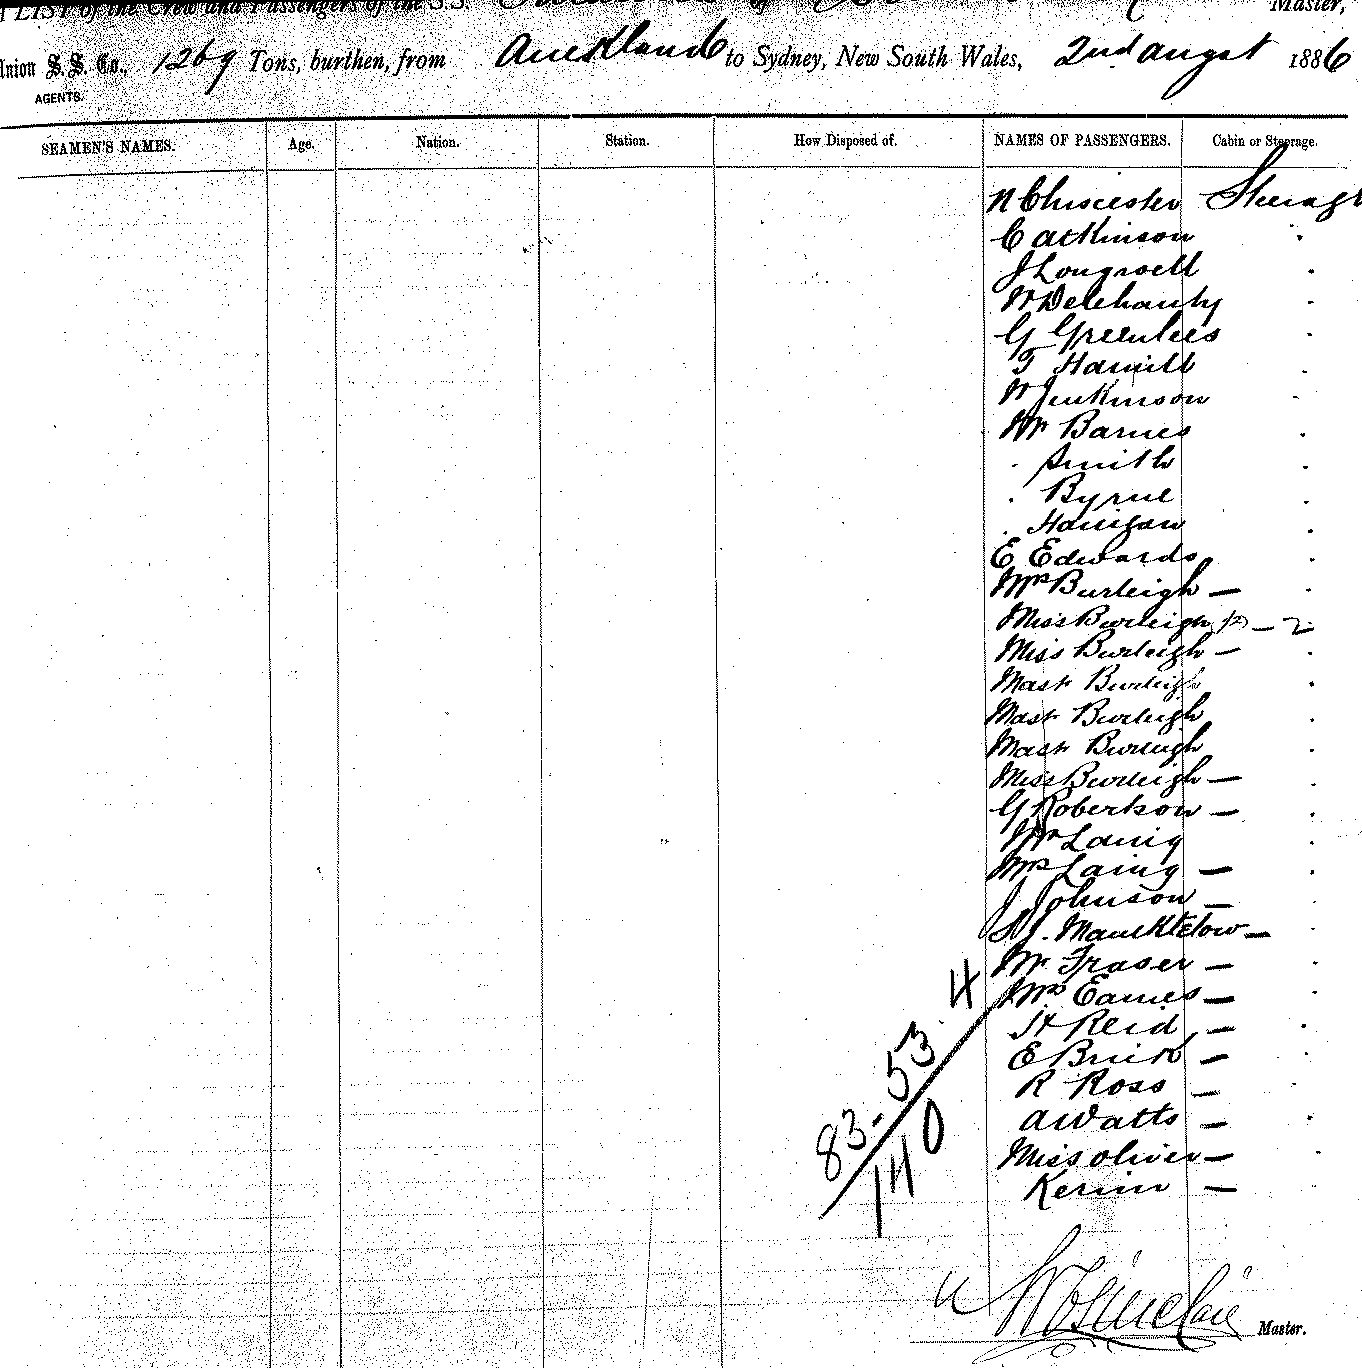 A LIST of the Crew and Passengers of the S.S. Master,
Union S. S. Co., 1269 Tons, burthen, from Auckland to Sydney, New South Wales, 2nd Augst 1886
AGENTS.
SEAMEN'S NAMES. Age. Nation. Station. How Disposed of. NAMES OF PASSENGERS. Cabin or Steerage.
N Chicester Steerage
C Atkinson
J Longwell
W Delehanty
G Greenlees
T Hamill
W Jenkinson
Mr Barnes
. Smith
. Byrne
. Hanigan
E Edwards
Mrs Burleigh —
Miss Burleigh — 2
Miss Burleigh —
Mast Burleigh
Mast Burleigh
Mast Burleigh
Miss Burleigh —
G Robertson —
Mr Laing
Mrs Laing —
J Johnson —
J. Mancktelow —
Mr Fraser —
Mrs Eames —
H Reid —
E Brick —
R Ross —
A Watts —
Miss Oliver —
Kerim —
83 - 53. 4
140
W Sinclair Master.